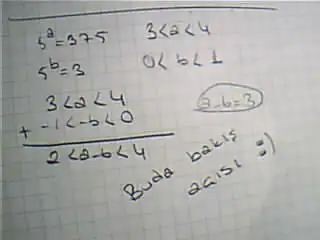 5^a=375 3<a<4
5^b=3 0<b<1
3<a<4
+ -1<-b<0
a-b=3
2<a-b<4
Buda bakış
açısı :)